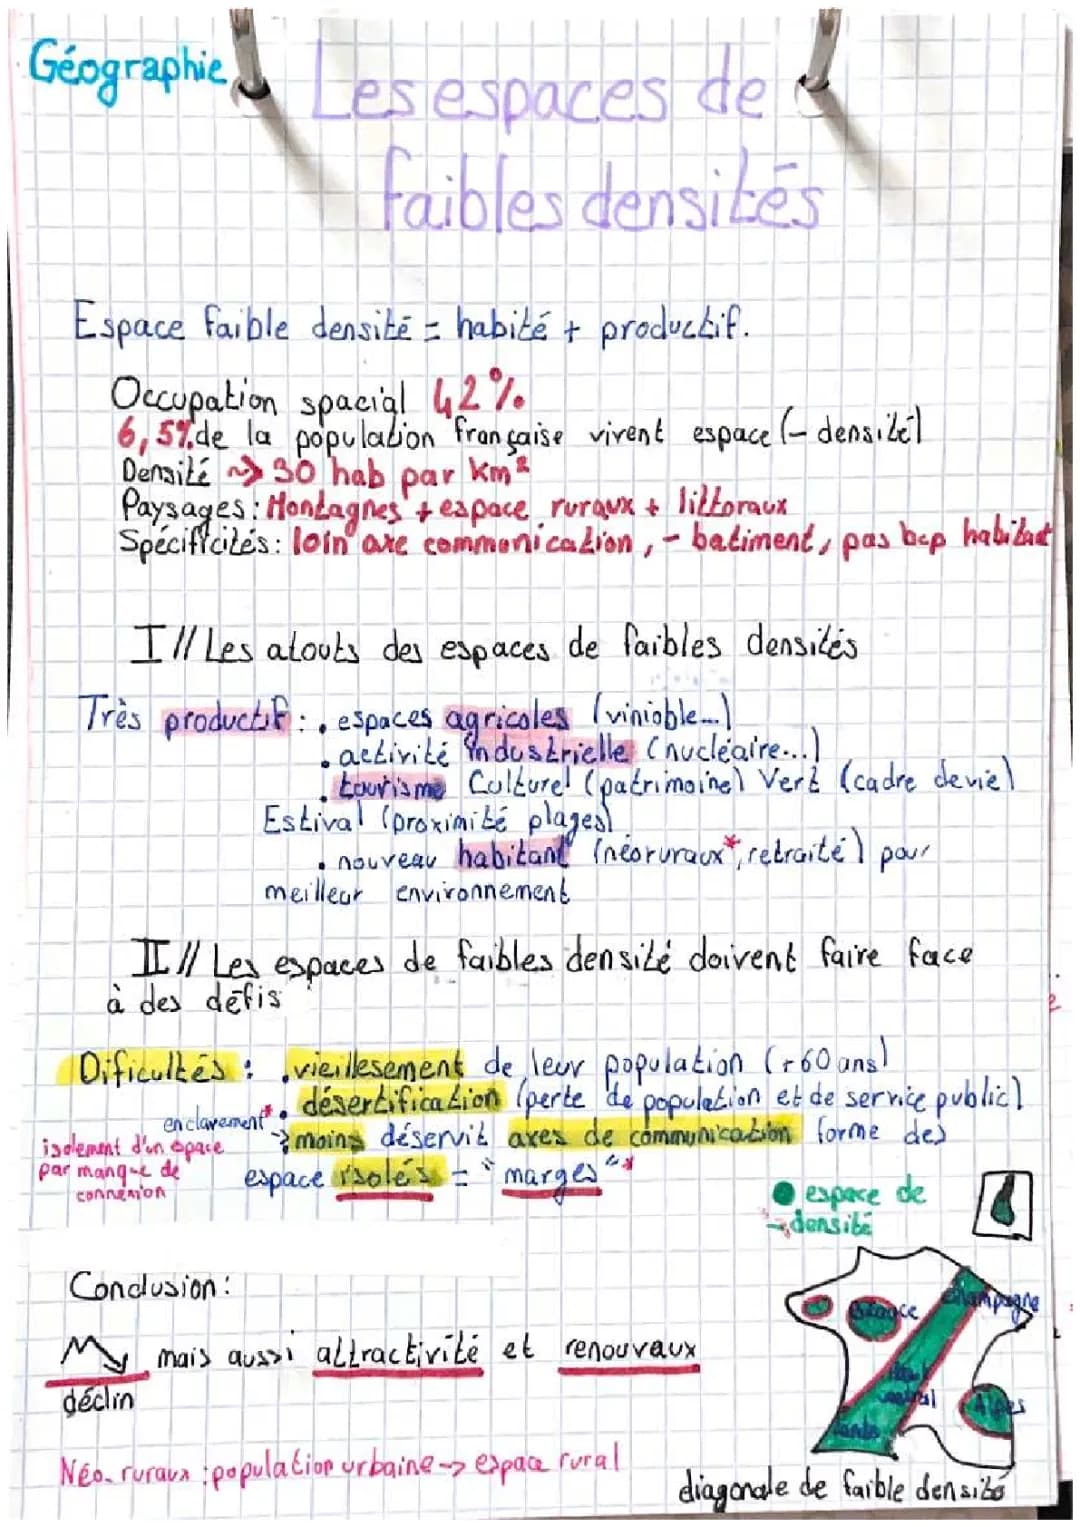 Géographie
Les espaces de
faibles densités
Espace faible densité = habité + productif.
Occupation spacial 42%
6,5% de la population française vivent espace (- densité)
Densité ~> 30 hab par km²
Paysages : Montagnes + espace ruraux + littoraux
Spécificités : loin axe communication, - batiment, pas bcp habitant
I // Les atouts des espaces de faibles densités
Très productif : . espaces agricoles (vinioble...)
. activité industrielle (nucléaire...)
. tourisme Culturel (patrimoine) Vert (cadre de vie)
Estival (proximité plages)
. nouveau habitant (néoruraux*, retraité) pour
meilleur environnement
II // Les espaces de faibles densité doivent faire face
à des défis
Dificultés : . vieillesement de leur population (+60 ans)
. désertification (perte de population et de service public)
enclavement*
isolement d'un espace
par manque de
connexion
→ moins déservit axes de communication forme des
espace isolés = "marges"*
espace de
- densité
Conclusion :
mais aussi attractivité et renouvaux
déclin
Champagne
Alpes
Néo-ruraux : population urbaine -> espace rural
diagonale de faible densité